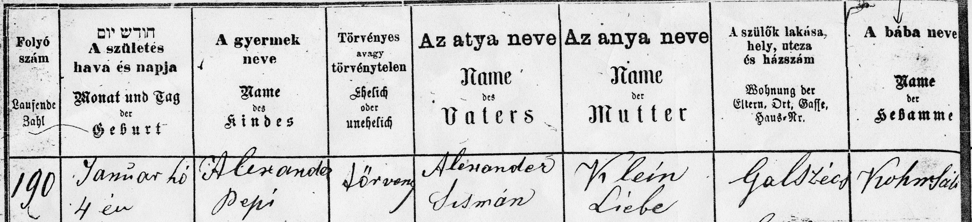 Folyó
szám
Laufende
Zahl
חודש יום
A születés
hava és napja
Monat und Tag
der
Geburt
A gyermek
neve
Name
des
Kindes
Törvényes
avagy
törvénytelen
Ehelich
oder
unehelich
Az atya neve
Name
des
Vaters
Az anya neve
Name
der
Mutter
A szülők lakása,
hely, utcza
és házszám
Wohnung der
Eltern, Ort, Gasse,
Haus-Nr.
A bába neve
Name
der
Hebamme
190
Januar hó
4 én
Alexander
Pepi
törveny
Alexander
Sismán
Klein
Liebe
Galszécs
Kohn